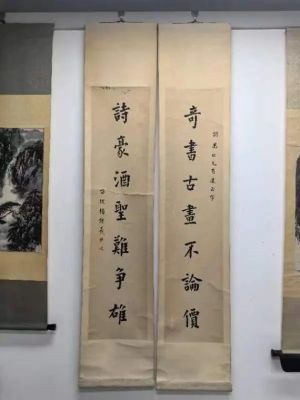 奇書古畫不論價
詩豪酒聖難爭雄